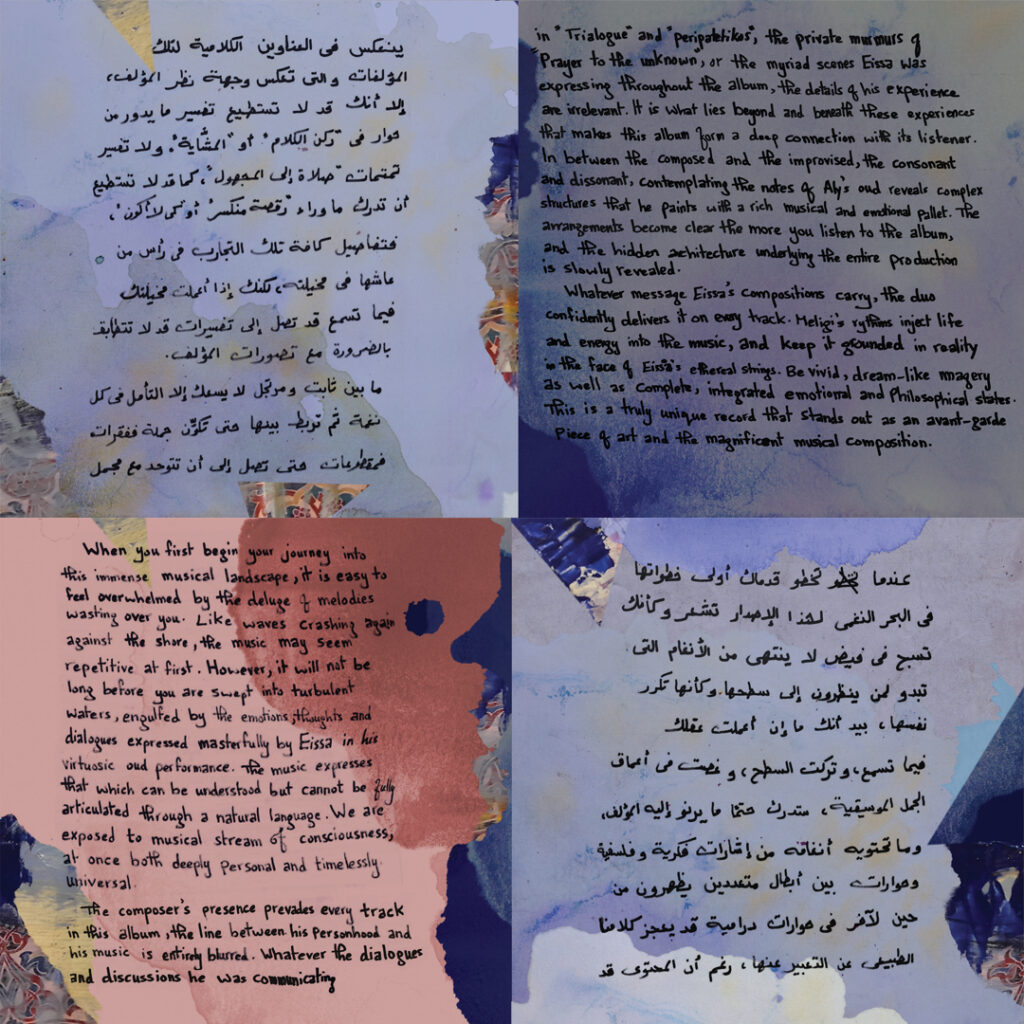 ينعكس فى العناوين الكلامية لتلك
المؤلفات والتى تعكس وجهة نظر المؤلف،
إلا أنك قد لا تستطيع تفسير ما يدور من
حوار فى "ركن الكلام" أو "المشّاية"، ولا تفسير
تمتمات "صلاة إلى المجهول"، كما قد لا تستطيع
أن تدرك ما وراء "رقصة منكسر" أو "كى لا أكون"،
فتفاصيل كافة تلك التجارب فى رأس من
عاشها فى مخيلته، لكنك إذا أعملت مخيلتك
فيما تسمع قد تصل إلى تفسيرات قد لا تتطابق
بالضرورة مع تصورات المؤلف.
ما بين ثابت ومرتجل لا يسعك إلا التأمل فى كل
نغمة ثم تربط بينها حتى تكوّن جملة ففقرات
فمقطوعات حتى تصل إلى أن تتوحد مع مجمل
in "Trialogue" and "peripatetikos", the private murmurs of
"Prayer to the unknown", or the myriad scenes Eissa was
expressing throughout the album, the details of his experience
are irrelevant. It is what lies beyond and beneath these experiences
that makes this album form a deep connection with its listener.
In between the composed and the improvised, the consonant
and dissonant, contemplating the notes of Aly's oud reveals complex
structures that he paints with a rich musical and emotional pallet. The
arrangements become clear the more you listen to the album,
and the hidden architecture underlying the entire production
is slowly revealed.
Whatever message Eissa's compositions carry, the duo
confidently delivers it on every track. Meligi's rythms inject life
and energy into the music, and keep it grounded in reality
in the face of Eissa's ethereal strings. Be vivid, dream-like imagery
as well as complete, integrated emotional and Philosophical states.
This is a truly unique record that stands out as an avant-garde
Piece of art and the magnificent musical composition.
When you first begin your journey into
this immense musical landscape, it is easy to
feel overwhelmed by the deluge of melodies
wasting over you. Like waves crashing again
against the shore, the music may seem
repetitive at first. However, it will not be
long before you are swept into turbulent
waters, engulfed by the emotions, thoughts and
dialogues expressed masterfully by Eissa in his
virtuosic oud performance. The music expresses
that which can be understood but cannot be fully
articulated through a natural language. We are
exposed to musical stream of consciousness,
at once both deeply personal and timelessly
universal.
The composer's presence prevades every track
in this album, the line between his personhood and
his music is entirely blurred. Whatever the dialogues
and discussions he was communicating
عندما تخطو قدماك أولى خطواتها
فى البحر النغمى لهذا الإصدار تشعر وكأنك
تسبح فى فيض لا ينتهى من الأنغام التى
تبدو لمن ينظرون إلى سطحها وكأنها تكرر
نفسها، بيد أنك ما إن أعملت عقلك
فيما تسمع، وتركت السطح، وغصت فى أعماق
الجمل الموسيقية، ستدرك حتمًا ما يرنو إليه المؤلف،
وما تحتويه أنغامه من إشارات فكرية وفلسفية
وحوارات بين أبطال متعددين يظهرون من
حين لآخر فى حوارات درامية قد يعجز كلامنا
الطبيعى عن التعبير عنها، رغم أن المحتوى قد